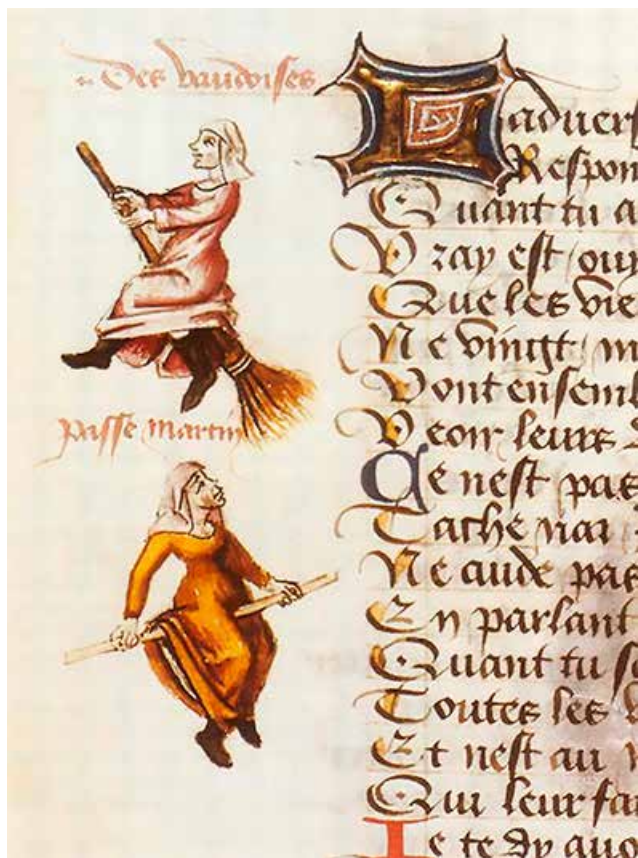 Des vaudoises
passe martin
Laduer
Respon
Quant tu a
Vray est / ouy
Que les vie
Ne vingt / m
Vont ensemb
Veoir leurs
Ce nest pas
Ne cuide pas
En parlant
Quant tu s
Toutes les
Et nest au
Qui leur fa
Je te dy auo